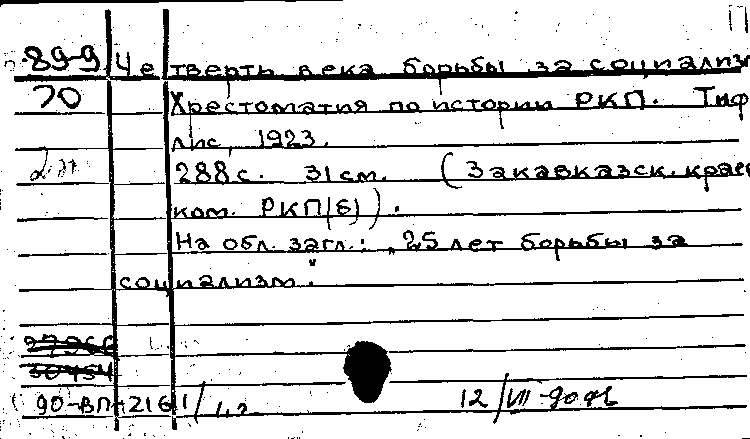 89-9 Четверть века борьбы за социализм
70 Хрестоматия по истории РКП. Тиф
лис, 1923.
288 с. 31 см. (Закавказск. краев
ком. РКП(б)).
На обл. загл.: „25 лет борьбы за
социализм."
27966
30454
90-ВП-2161/42 12/VII-90